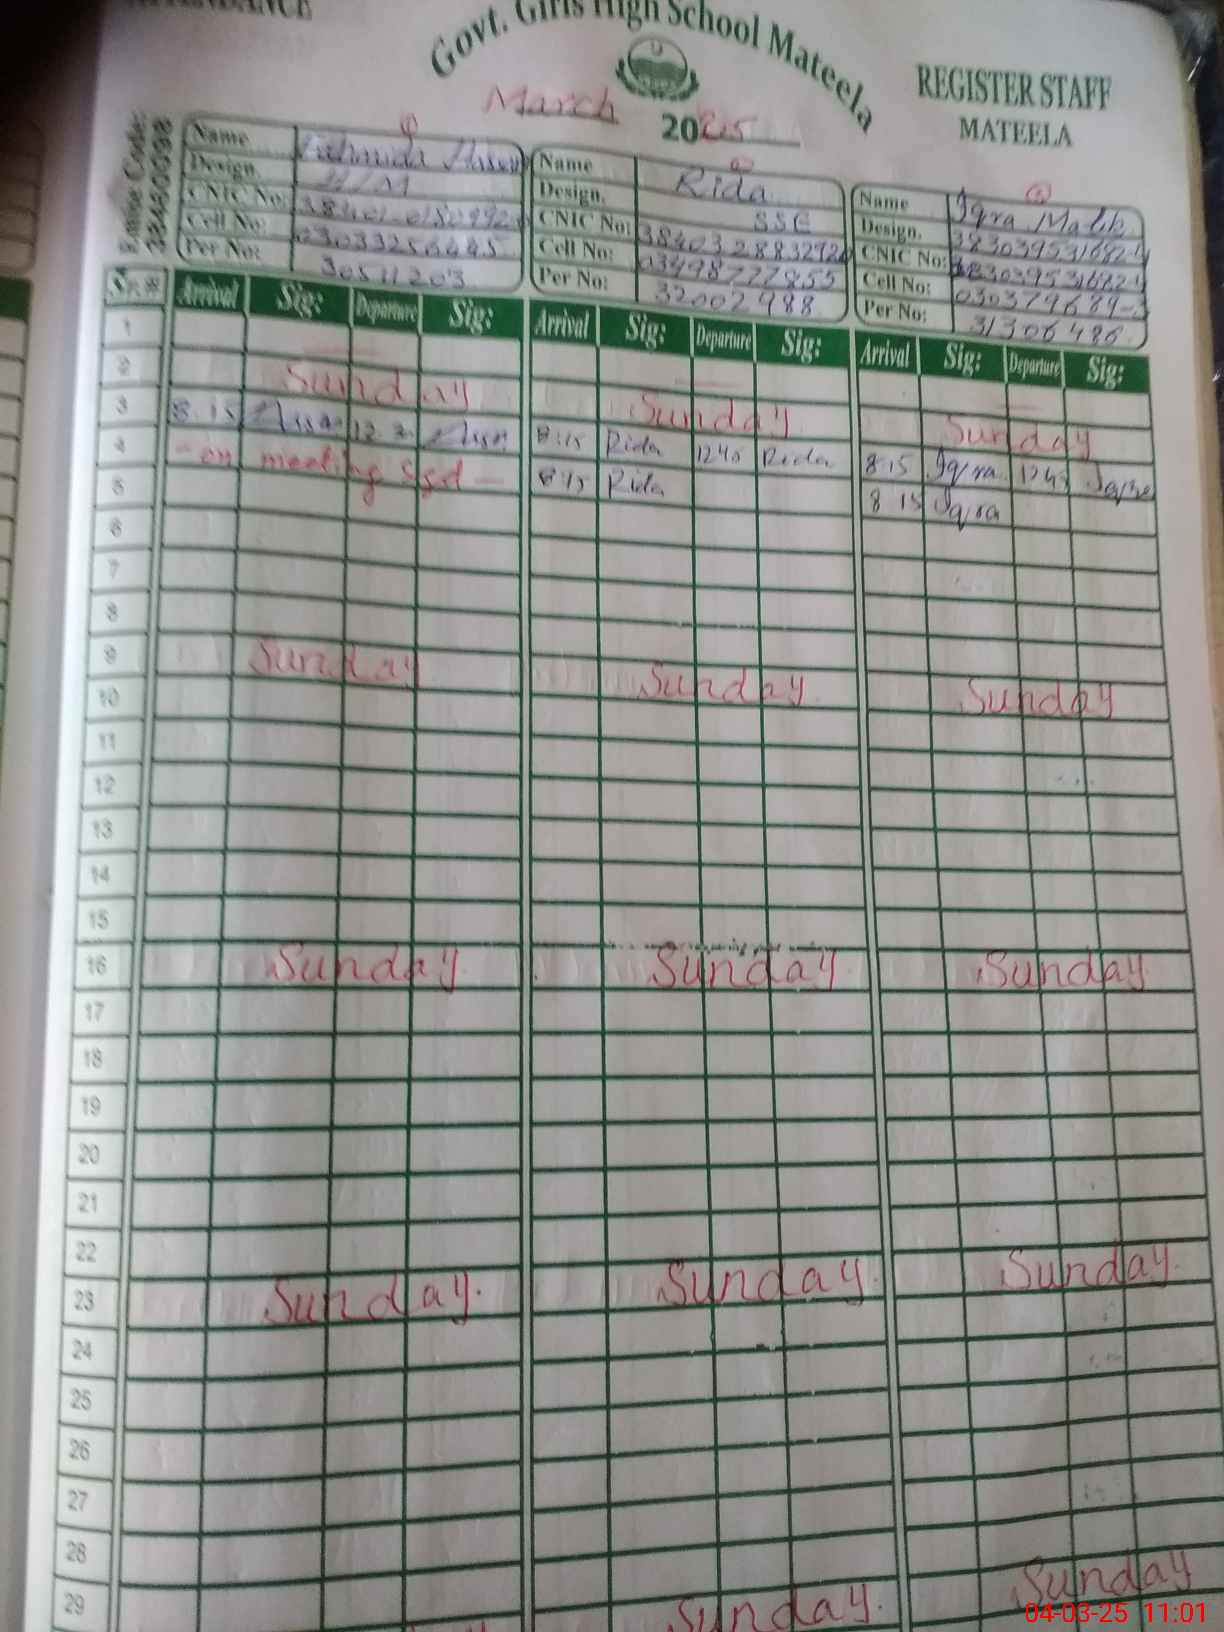 Govt. Girls High School Mateela
REGISTER STAFF
MATEELA
March
2025
Name
Design.
H/M
CNIC No:
Cell No:
Per No:
30511203
Name Rida
Design. SSE
CNIC No:
Cell No:
Per No: 32002988
Name Iqra Malik
Design.
CNIC No:
Cell No:
Per No: 31306486
Sr.# Arrival Sig: Departure Sig: Arrival Sig: Departure Sig: Arrival Sig: Departure Sig:
1
2 Sunday Sunday Sunday
3 8:15 8:15 Rida 1245 Rida 8:15 Iqra 1245
4 - on meeting Sgd - 8:15 Rida 8 15 Iqra
5
6
7
8
9 Sunday Sunday Sunday
10
11
12
13
14
15
16 Sunday Sunday Sunday
17
18
19
20
21
22
23 Sunday Sunday Sunday
24
25
26
27
28
29
Sunday Sunday
04-03-25 11:01